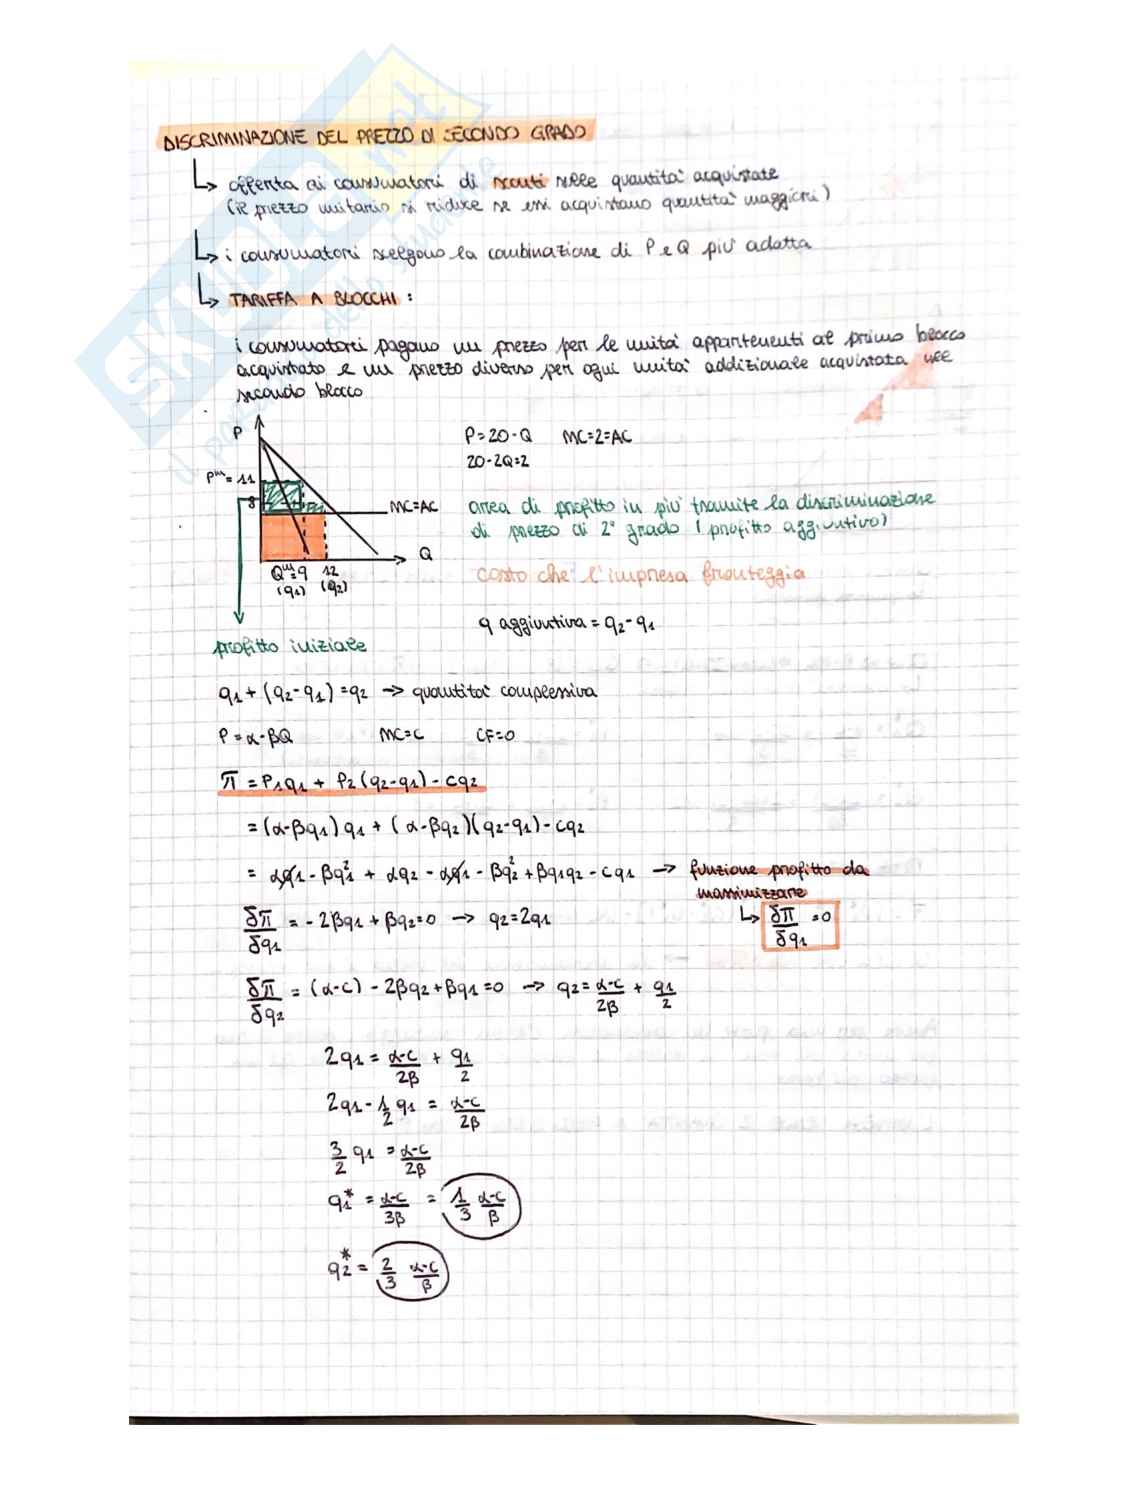 DISCRIMINAZIONE DEL PREZZO DI SECONDO GRADO
↳ offerta ai consumatori di sconti sulle quantità acquistate
(il prezzo unitario si riduce se essi acquistano quantità maggiori)
↳ i consumatori scelgono la combinazione di P e Q più adatta
↳ TARIFFA A BLOCCHI:
i consumatori pagano un prezzo per le unità appartenenti al primo blocco
acquistato e un prezzo diverso per ogni unità addizionale acquistata nel
secondo blocco
P
P=20-Q MC=2=AC
20-2Q=2
Pᵐ=11
8
MC=AC
area di profitto in più tramite la discriminazione
di prezzo di 2° grado (profitto aggiuntivo)
Q
Qᵐ=9 12
(q1) (q2)
costo che l'impresa fronteggia
q aggiuntiva = q2-q1
profitto iniziale
q1+(q2-q1)=q2 → quantità complessiva
P=α-βQ MC=C CF=0
π = P1q1 + P2(q2-q1)-cq2
=(α-βq1)q1+(α-βq2)(q2-q1)-cq2
= αq1-βq1²+αq2-αq1-βq2²+βq1q2-cq1 → funzione profitto da
massimizzare
↳ δπ/δq1 =0
δπ/δq1 = -2βq1+βq2=0 → q2=2q1
δπ/δq2 = (α-c)-2βq2+βq1=0 → q2=α-c/2β + q1/2
2q1 = α-c/2β + q1/2
2q1-1/2 q1 = α-c/2β
3/2 q1 = α-c/2β
q1* = α-c/3β = 1/3 α-c/β
q2* = 2/3 α-c/β
SKUOLA.net
il paradiso dello studente